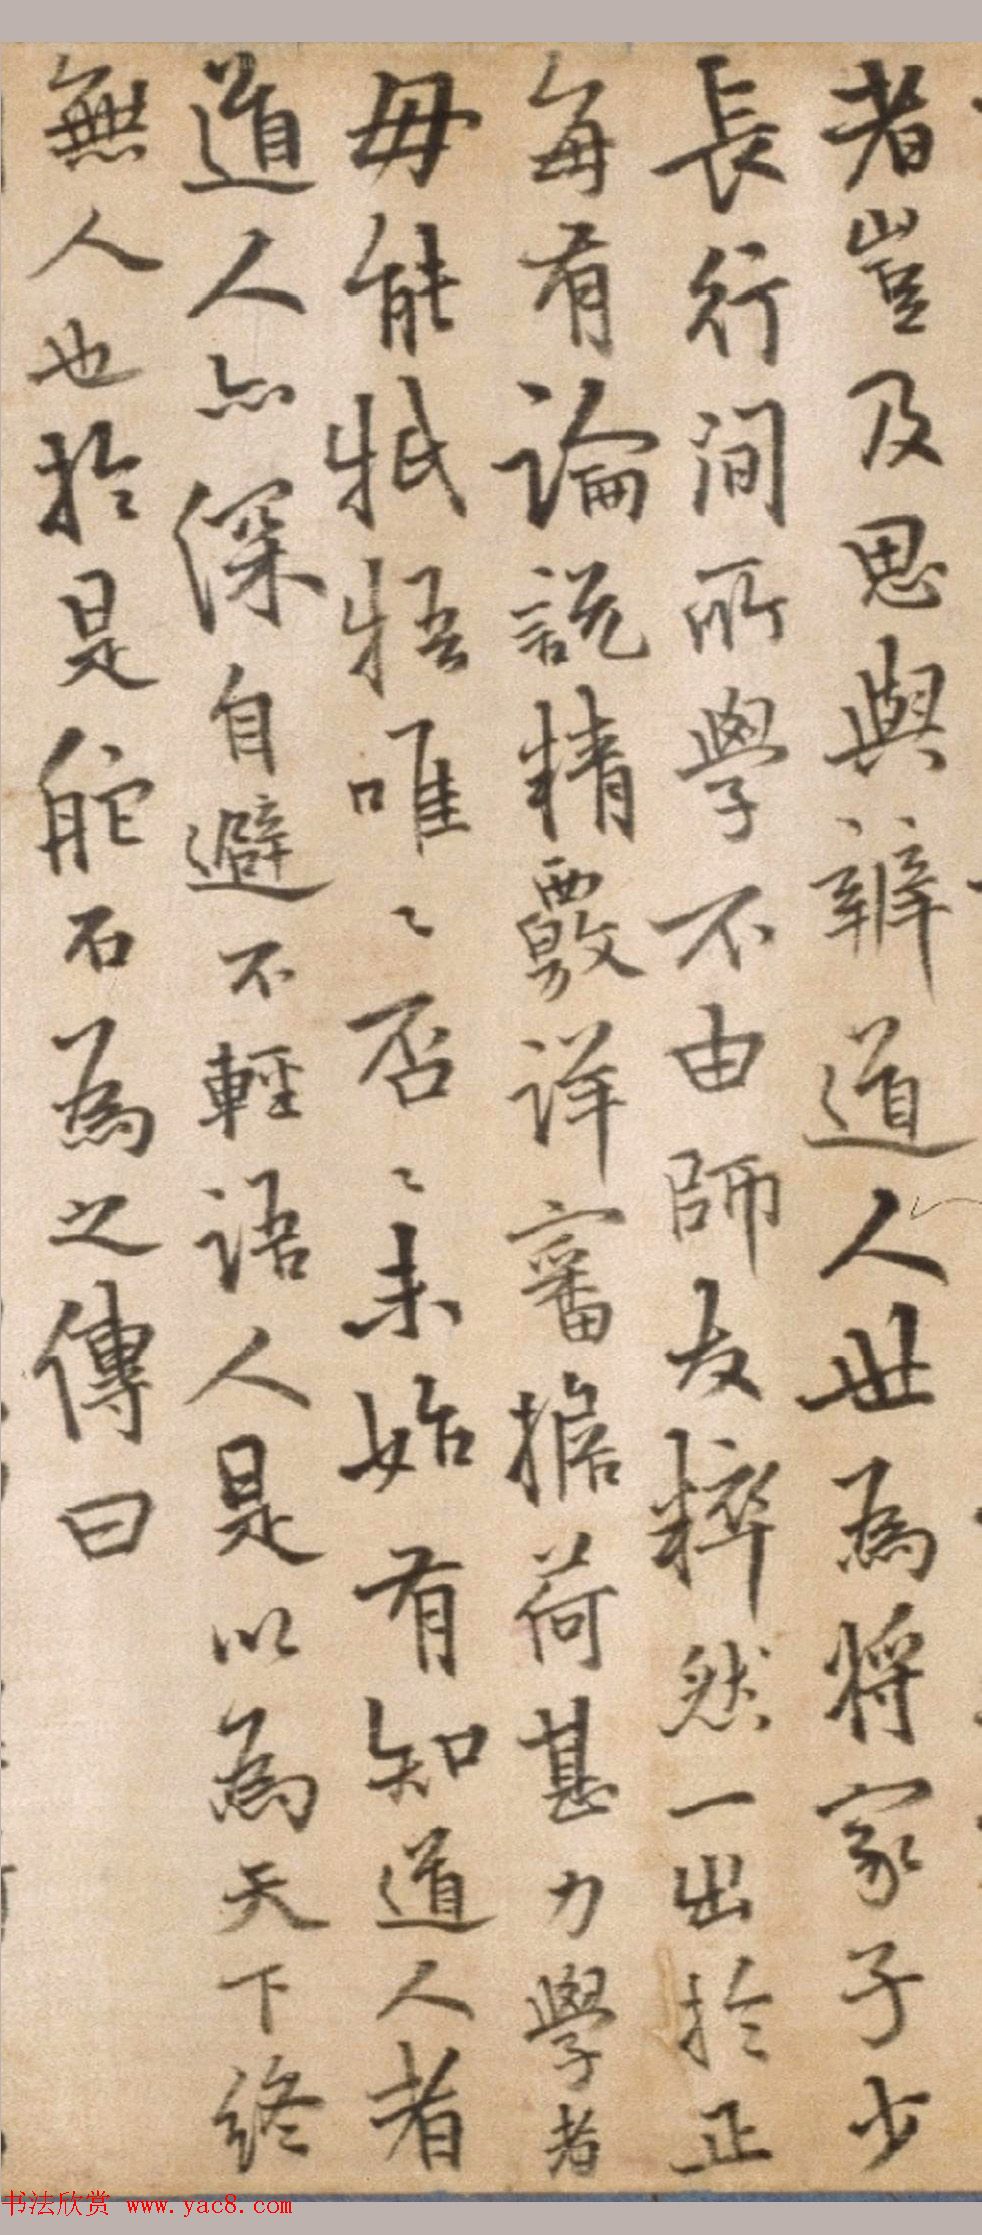 者豈及思與辨道人世為將家子少
長行間所學不由師友粹然一出於正
每有論說精覈詳審擔荷甚力學者
毋能牴牾唯〻否〻未始有知道人者
道人亦深自避不輕語人是以為天下終
無人也於是舵石為之傳曰
书法欣赏 www.yac8.com